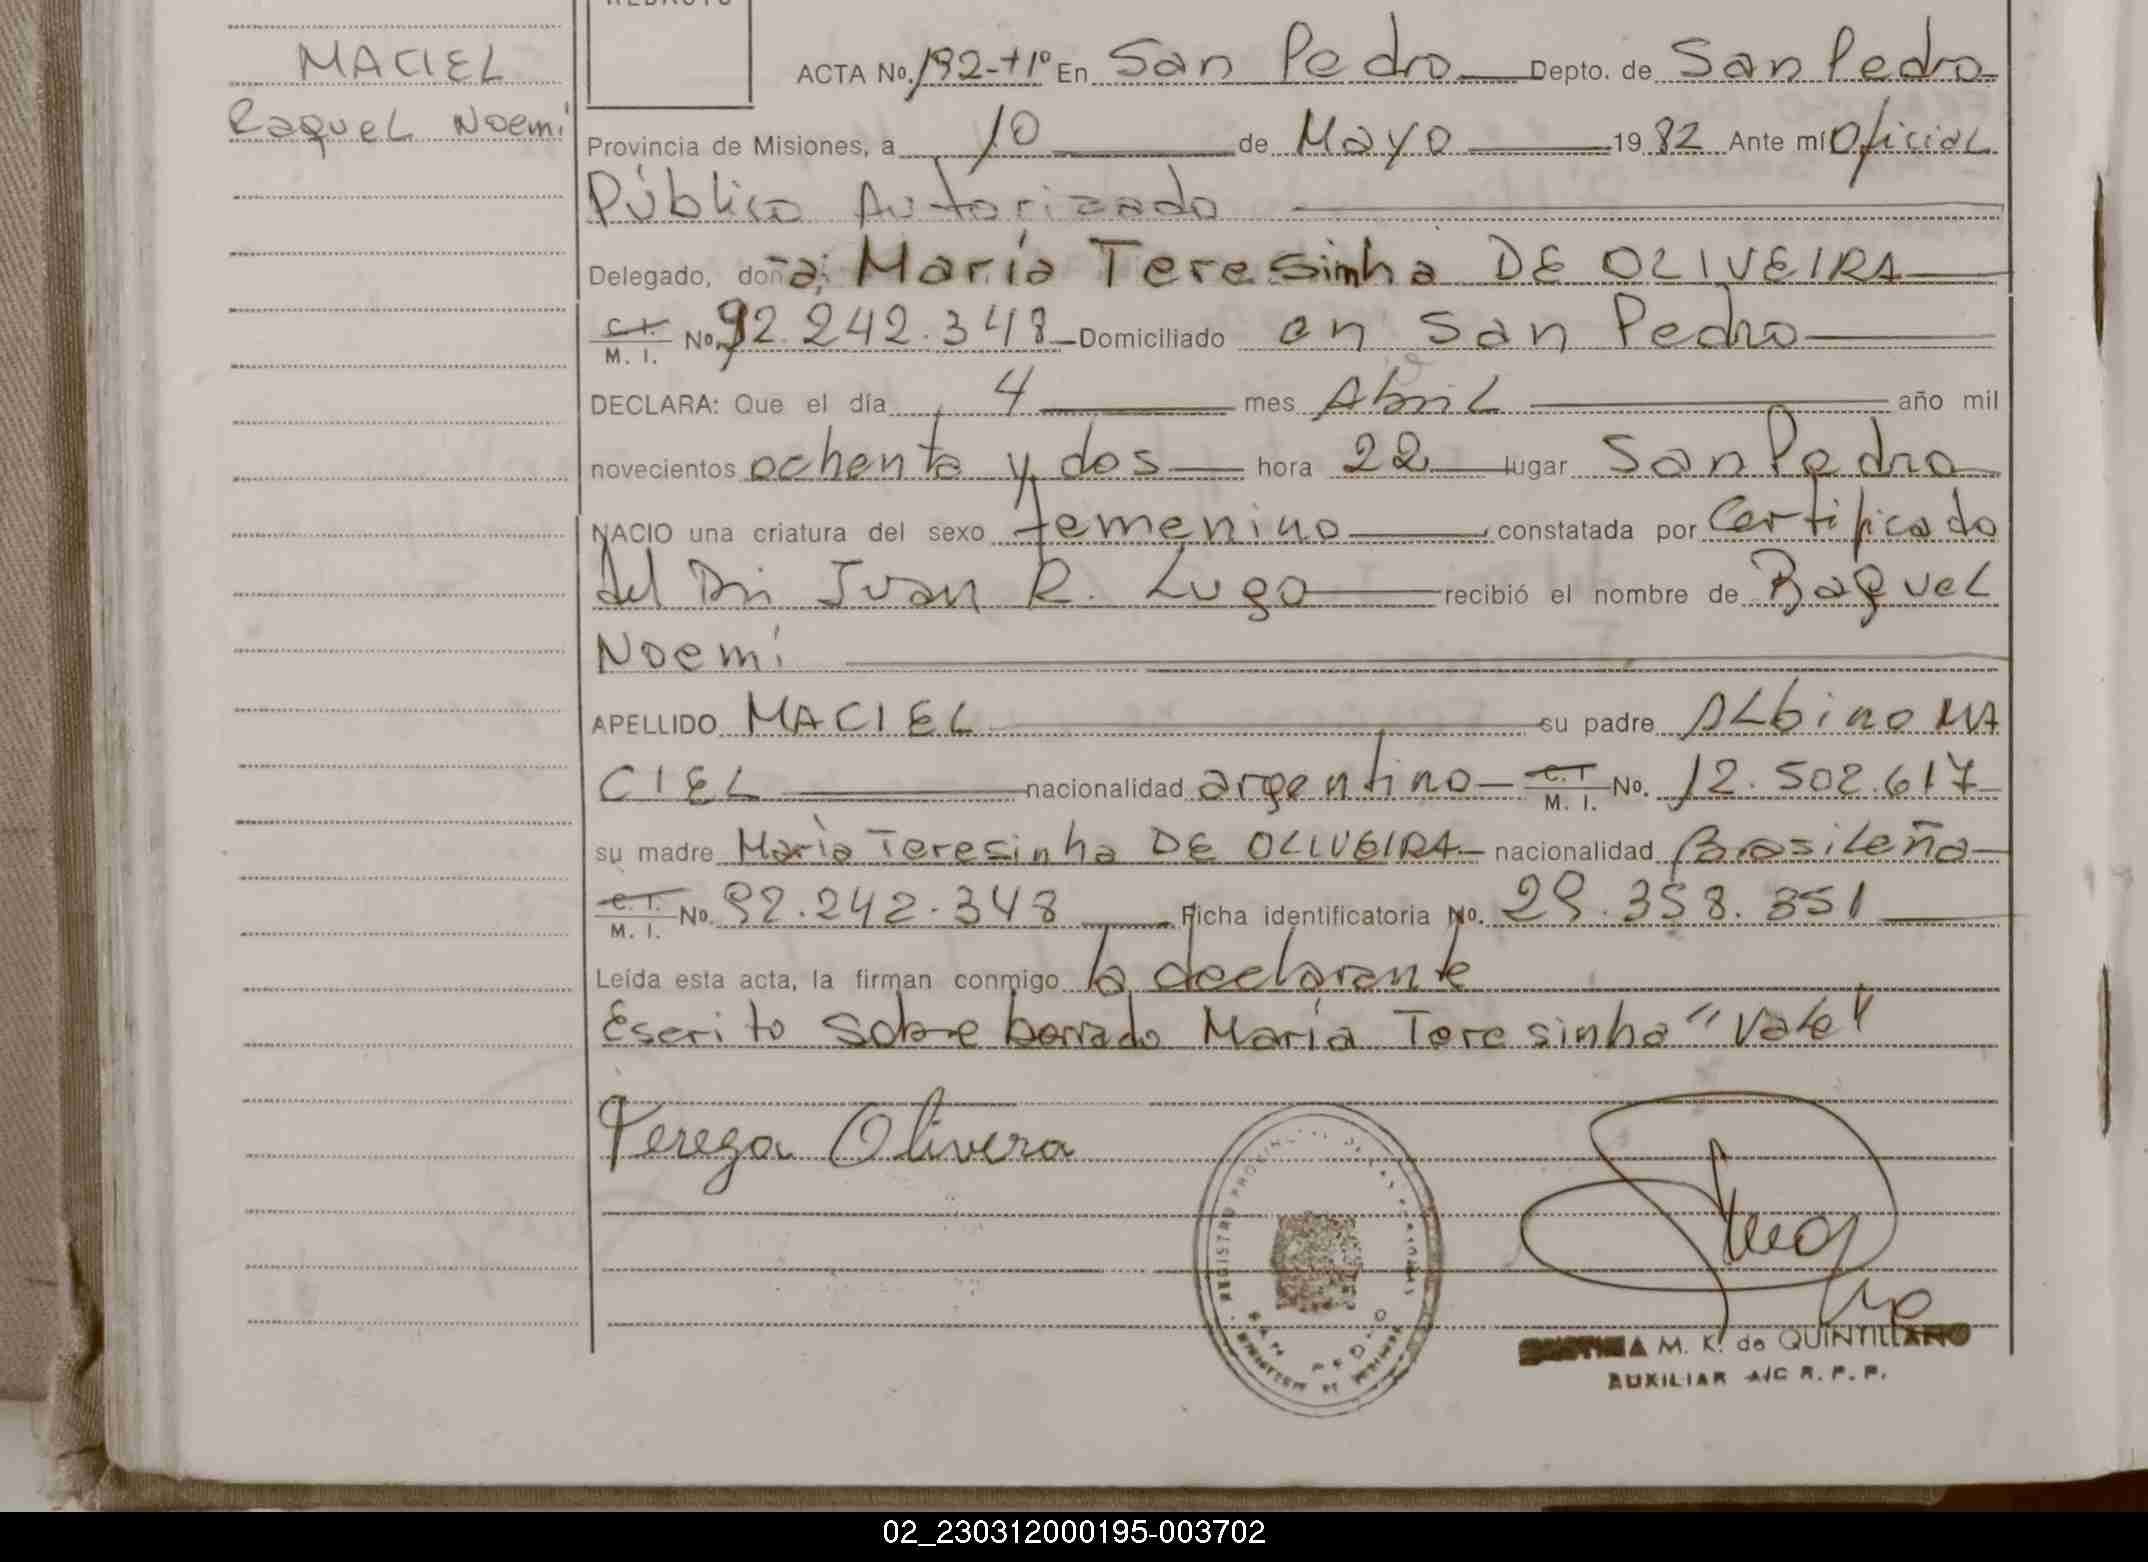 MACIEL
Raquel Noemí
ACTA No. 192-t1º En San Pedro Depto. de San Pedro
Provincia de Misiones, a 10 de Mayo 1982 Ante mí Oficial
Público Autorizado
Delegado, doña; María Teresinha DE OLIVEIRA
C. I. M. I. No. 92.242.348 Domiciliado en San Pedro
DECLARA: Que el día 4 mes Abril año mil
novecientos ochenta y dos hora 22 lugar San Pedro
NACIO una criatura del sexo femenino constatada por Certificado
del Dr. Juan R. Lugo recibió el nombre de Raquel
Noemí
APELLIDO MACIEL su padre Albino MA
CIEL nacionalidad argentino C. I. M. I. No. 12.502.617
su madre María Teresinha DE OLIVEIRA nacionalidad Brasileña
C. I. M. I. No. 92.242.348 Ficha identificatoria No. 29.358.851
Leída esta acta, la firman conmigo la declarante
Escrito sobre borrado María Teresinha "Vale"
Tereza Olivera
REGISTRO PROVINCIAL DE LAS PERSONAS
SAN PEDRO
A M. K. de QUINTILLANO
AUXILIAR A/C R. P. P.
02_230312000195-003702